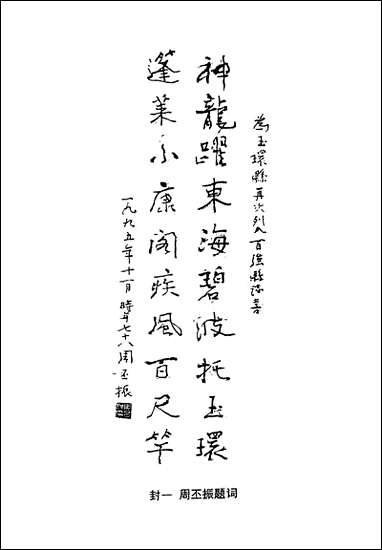 為玉環縣再次列入百强縣誌喜
神龍躍東海碧波托玉環
蓬莱小康阁疾風百尺竿
一九九五年十一月 時年七十八周丕振
封一 周丕振题词